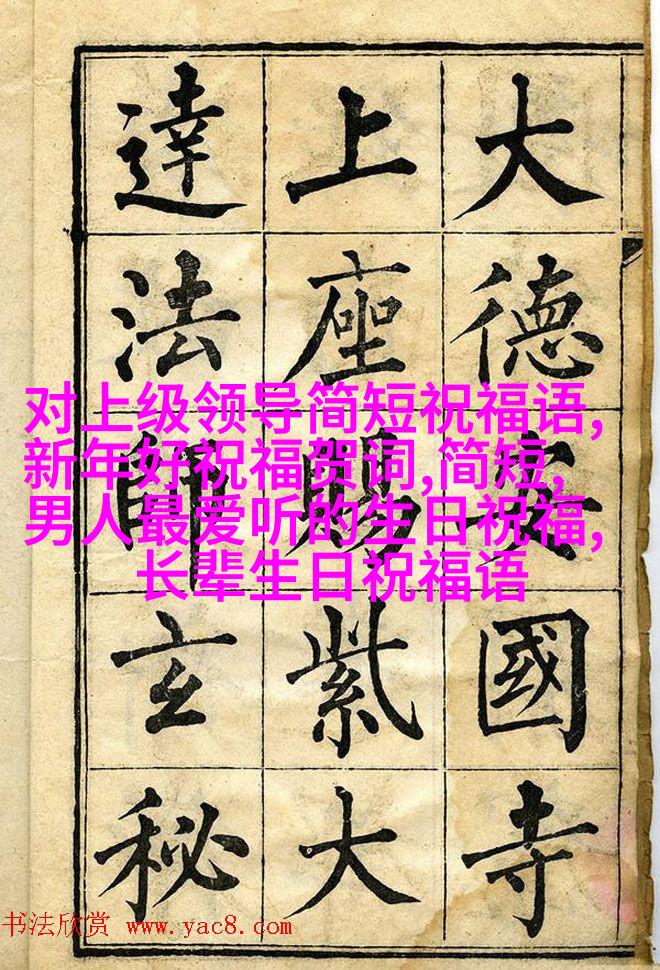 大德安國寺
上座賜紫大
達法師玄秘
对上级领导简短祝福语,
新年好祝福贺词,简短,
男人最爱听的生日祝福,
长辈生日祝福语
书法欣赏 www.yac8.com